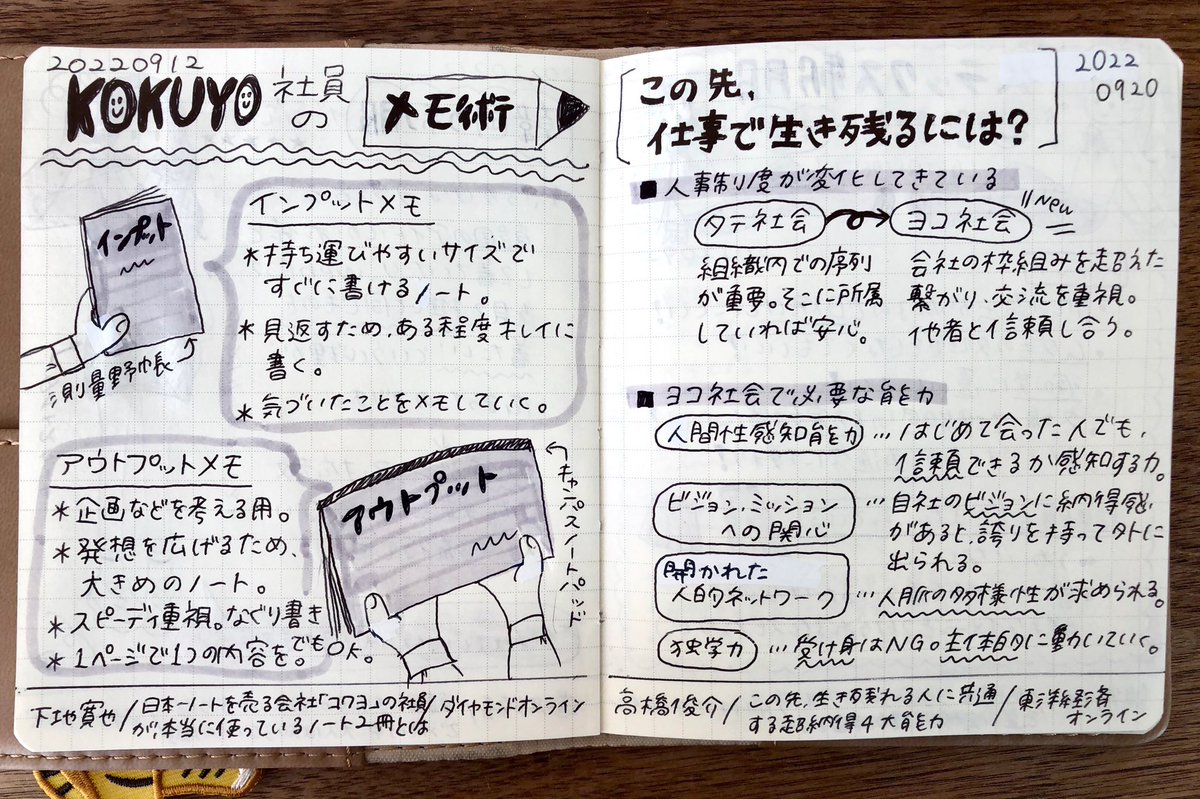 20220912
KOKUYO 社員の メモ術
インプット
測量野帳
インプットメモ
*持ち運びやすいサイズで
すぐに書けるノート。
*見返すため、ある程度キレイに
書く。
*気づいたことをメモしていく。
アウトプットメモ
*企画などを考える用。
*発想を広げるため、
大きめのノート。
*スピーディ重視。なぐり書き
でもOK。
*1ページで1つの内容を。
アウトプット
キャンパスノートパッド
下地寛也/日本一ノートを売る会社「コクヨ」の社員が本当に使っているノート2冊とは/ダイヤモンドオンライン
2022
0920
この先、
仕事で生き残るには?
■人事制度が変化してきている
タテ社会 ヨコ社会 New
組織内での序列
が重要。そこに所属
していれば安心。
会社の枠組みを超えた
繋がり、交流を重視。
他者と信頼し合う。
■ヨコ社会で必要な能力
人間性感知能力 …はじめて会った人でも、
信頼できるか感知する力。
ビジョン、ミッション
への関心
…自社のビジョンに納得感
があると、誇りを持って外に
出られる。
開かれた
人的ネットワーク …人脈の多様性が求められる。
独学力 …受け身はNG。主体的に動いていく。
高橋俊介/この先、生き残れる人に共通する超納得4大能力/東洋経済オンライン